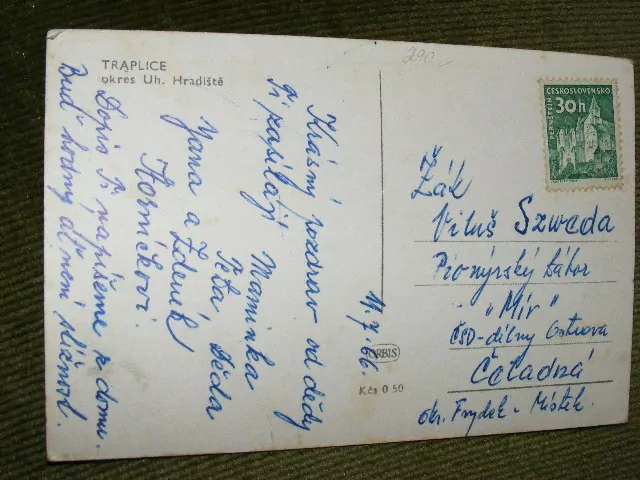 TRAPLICE
okres Uh. Hradiště
Krásný pozdrav od dědy
Ti zasílají Maminka
Péťa Děda
Jana a Zdeněk
Horníčkovi.
Dopis Ti napíšeme z domu.
Buď hodný ať není sličnol.
11.7.66.
ORBIS
Kčs 0 50
290
PERNŠTEJN
ČESKOSLOVENSKO
30h
Žák
Viluš Szweda
Pionýrský tábor
"Mír"
ČSD-dílny Ostrava
Čeladná
okr. Frýdek-Místek.